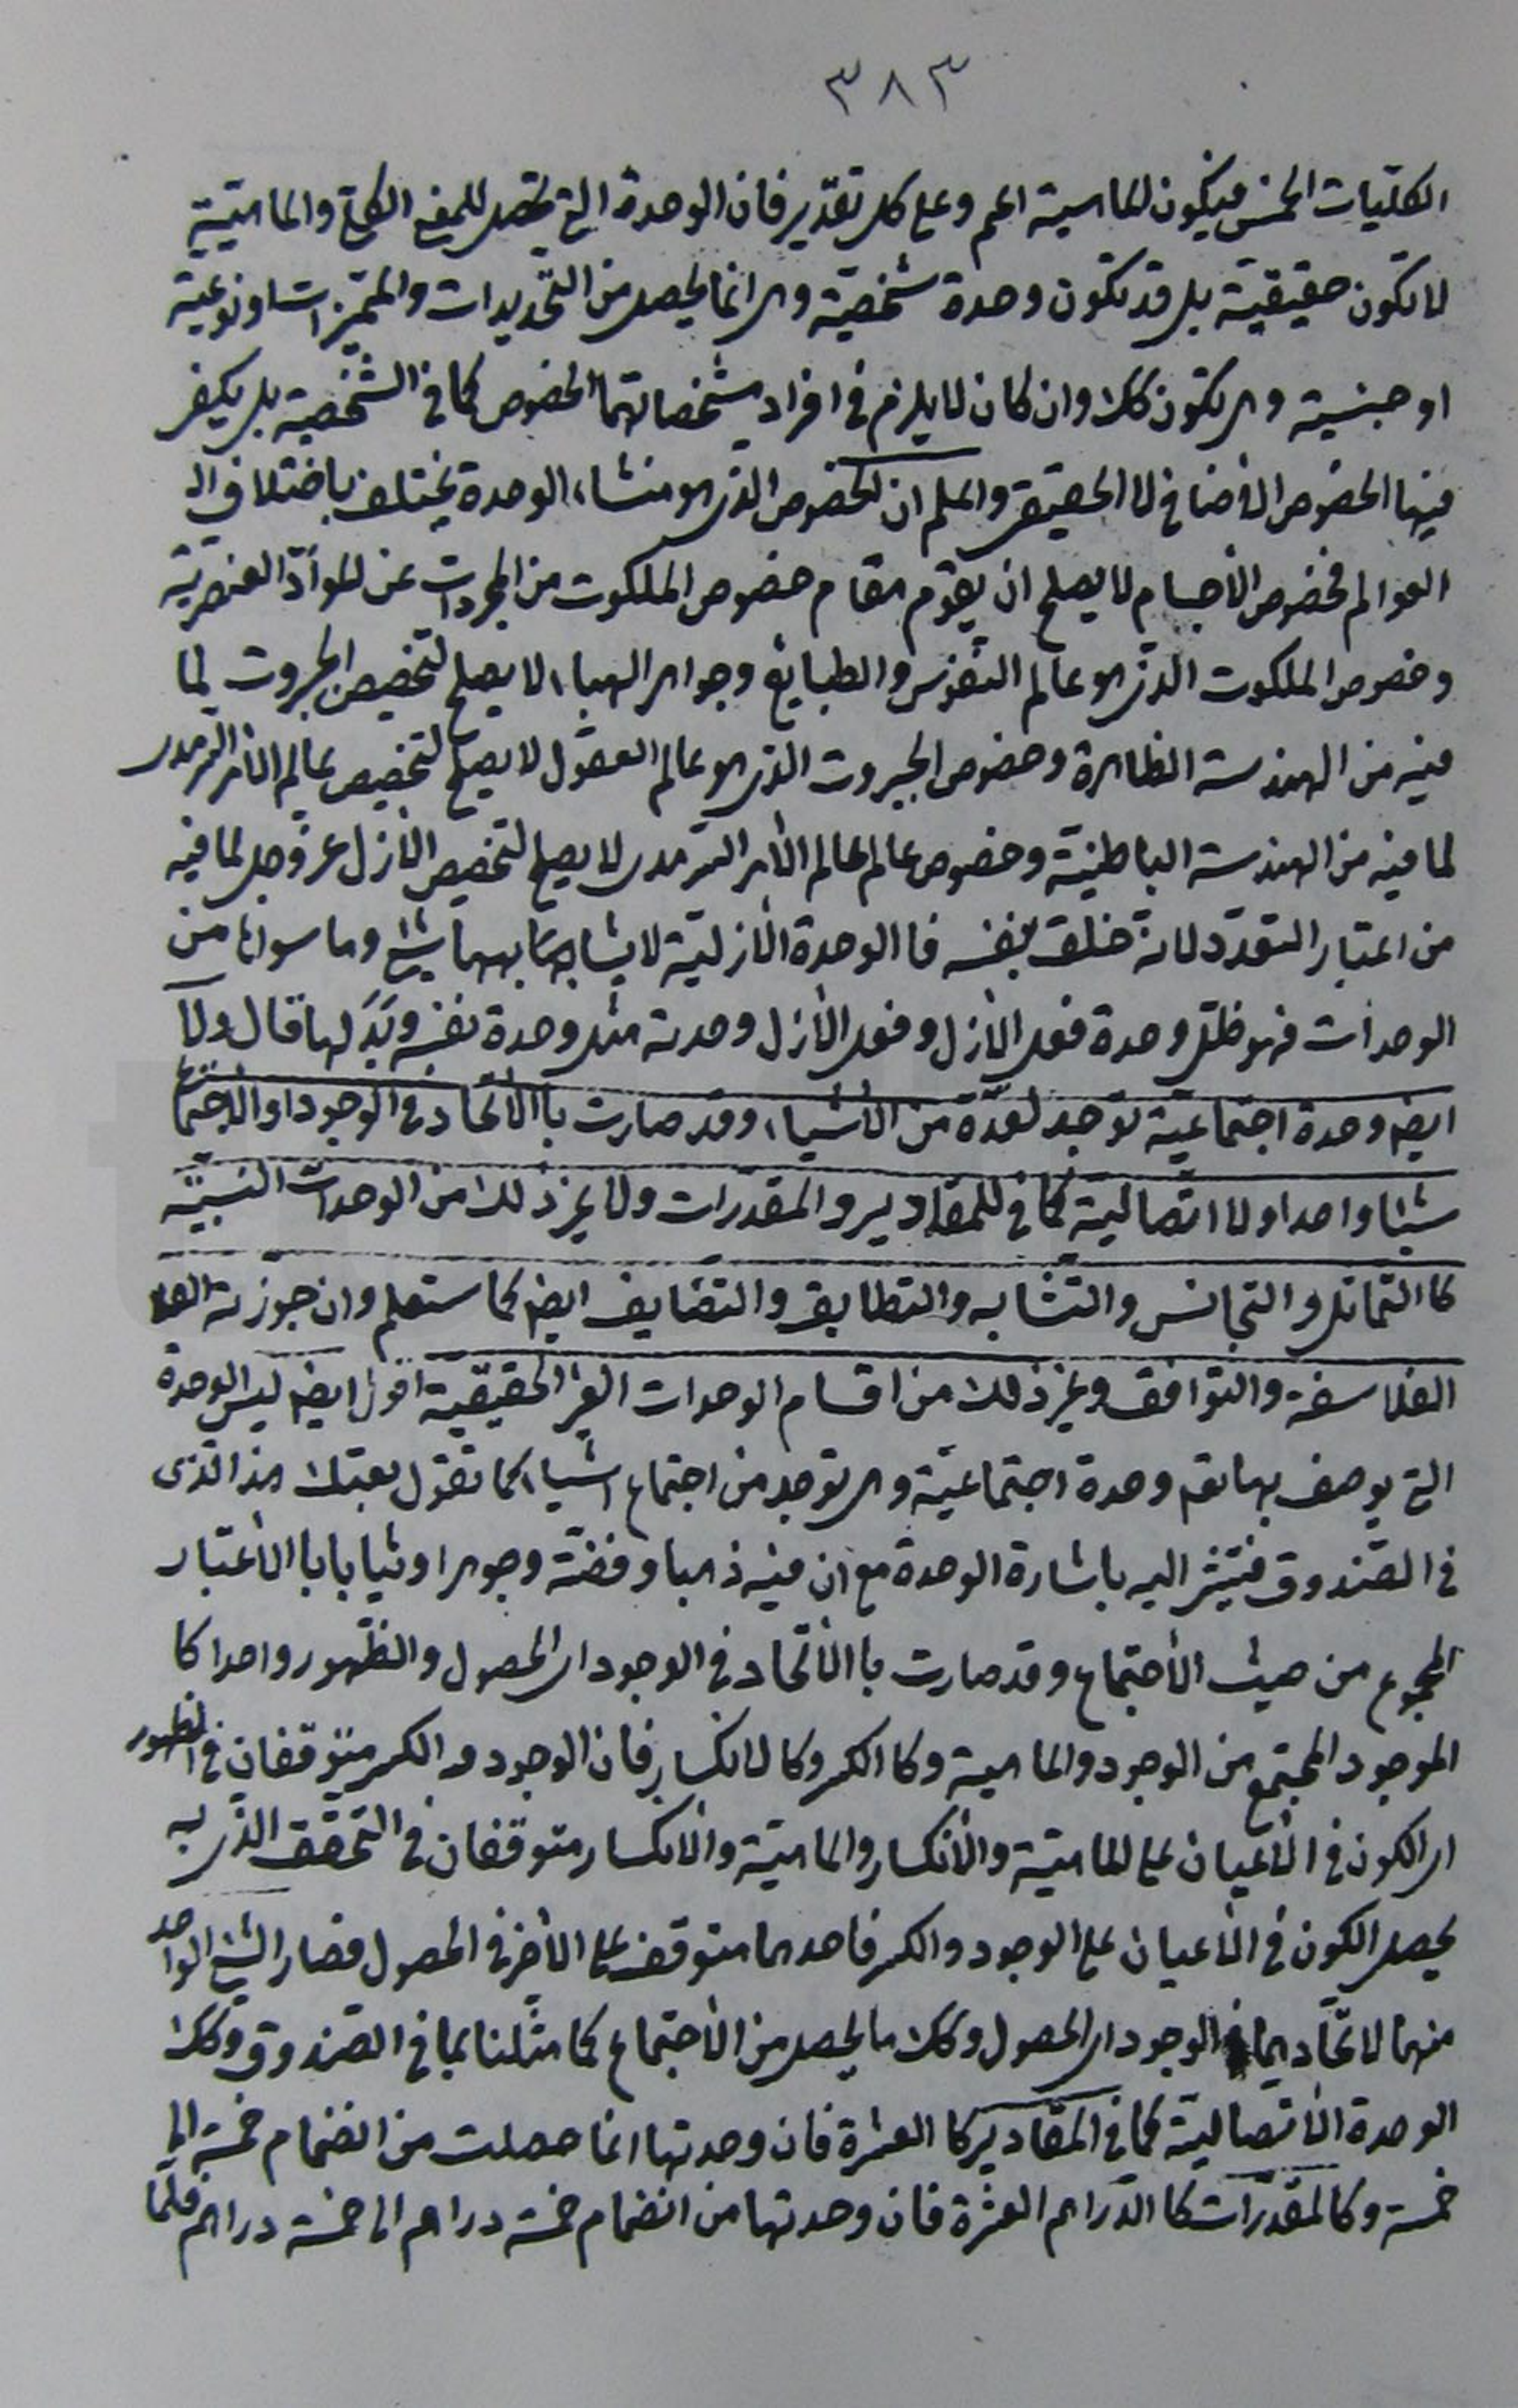 ٣٨٣
الكليات الخمس فيكون الماهية اعم وعلى كل تقدير فان الوحدة التى تحصل للمعنى الكلى والماهيّة
لا تكون حقيقيّة بل قد تكون وحدة شخصيّة وهى انما يحصل من التحديدات والمميّزات او نوعية
او جنسية وهى تكون كك وان كان لا يلزم فى افراد مشخصاتهما الخصوص كما فى الشخصية بل يكفى
فيها الخصوص الأضافى لا الحقيقى واعلم ان الخصوص الذى هو منشاء الوحدة يختلف باختلاف
العوالم فخصوص الأجسام لا يصلح ان يقوم مقام خصوص الملكوت من المجردات عن الموادّ العنصريّة
وخصوص الملكوت الذى هو عالم النفوس والطبايع وجواهر الهباء لا يصلح لتخصيص الجبروت لما
فيه من الهندسة الظاهرة وخصوص الجبروت الذى هو عالم العقول لا يصلح لتخصيص عالم الأمر السّرمدى
لما فيه من الهندسة الباطنيّة وخصوص عالم عالم الأمر السّرمدى لا يصلح لتخصيص الأزل عز وجل لما فيه
من اعتبار التعدّد لانه خلق بنفسه فا الوحدة الأزليّة لا يشابهها شئ وما سواها من
الوحدات فهو ظلّ وحدة فعل الأزل وفعل الأزل وحدته مثل وحدة نفسه قال ولا
ايضا وحدة اجتماعيّة توجد لعدّة من الأشياء وقد صارت با الأتحاد فى الوجود او الأجتماع
شيئا واحدا ولا اتصاليّة كما فى للمقادير والمقدّرات ولا غير ذلك من الوحدات النسبيّة
كا التماثل والتجانس والتشابه والتطابق والتضايف ايضا كما ستعلم وان جوّزته
الفلاسفة والتوافق وغير ذلك من اقسام الوحدات الغير الحقيقية اقول ايضا ليس الوحدة
التى يوصف بها تع وحدة اجتماعيّة وهى توجد من اجتماع اشياء كما تقول بعتك هذا الذى
فى الصّندوق فتشير اليه باشارة الوحدة مع ان فيه ذهبا وفضّة وجوهرا وثيابا با الأعتبار
المجموع من حيث الأجتماع وقد صارت با الأتّحاد فى الوجود اى الحصول والظّهور واحدا كا
الموجود المجتمع من الوجود والماهية وكا الكسر وكا الانكسار فان الوجود والكسر متوقفان فى الظهور
اى الكون فى الأعيان على الماهيّة والأنكسار والماهيّة والأنكسار متوقفان فى التحقق الذى به
يحصل الكون فى الأعيان على الوجود والكسر فاحدهما متوقف على الأخر فى الحصول فصار الشئ الواحد
منهما لاتّحادهما فى الوجود اى الحصول وكك ما يحصل من الأجتماع كما مثّلنا بما فى الصّندوق وكك
الوحدة الأتّصاليّة كما فى المقادير كا العشرة فان وحدتها انما حصلت من انضمام خمسة الى
خمسة وكا المقدّرات كا الدّراهم العشرة فان وحدتها من انضمام خمسة دراهم الى خمسة دراهم فلمّا